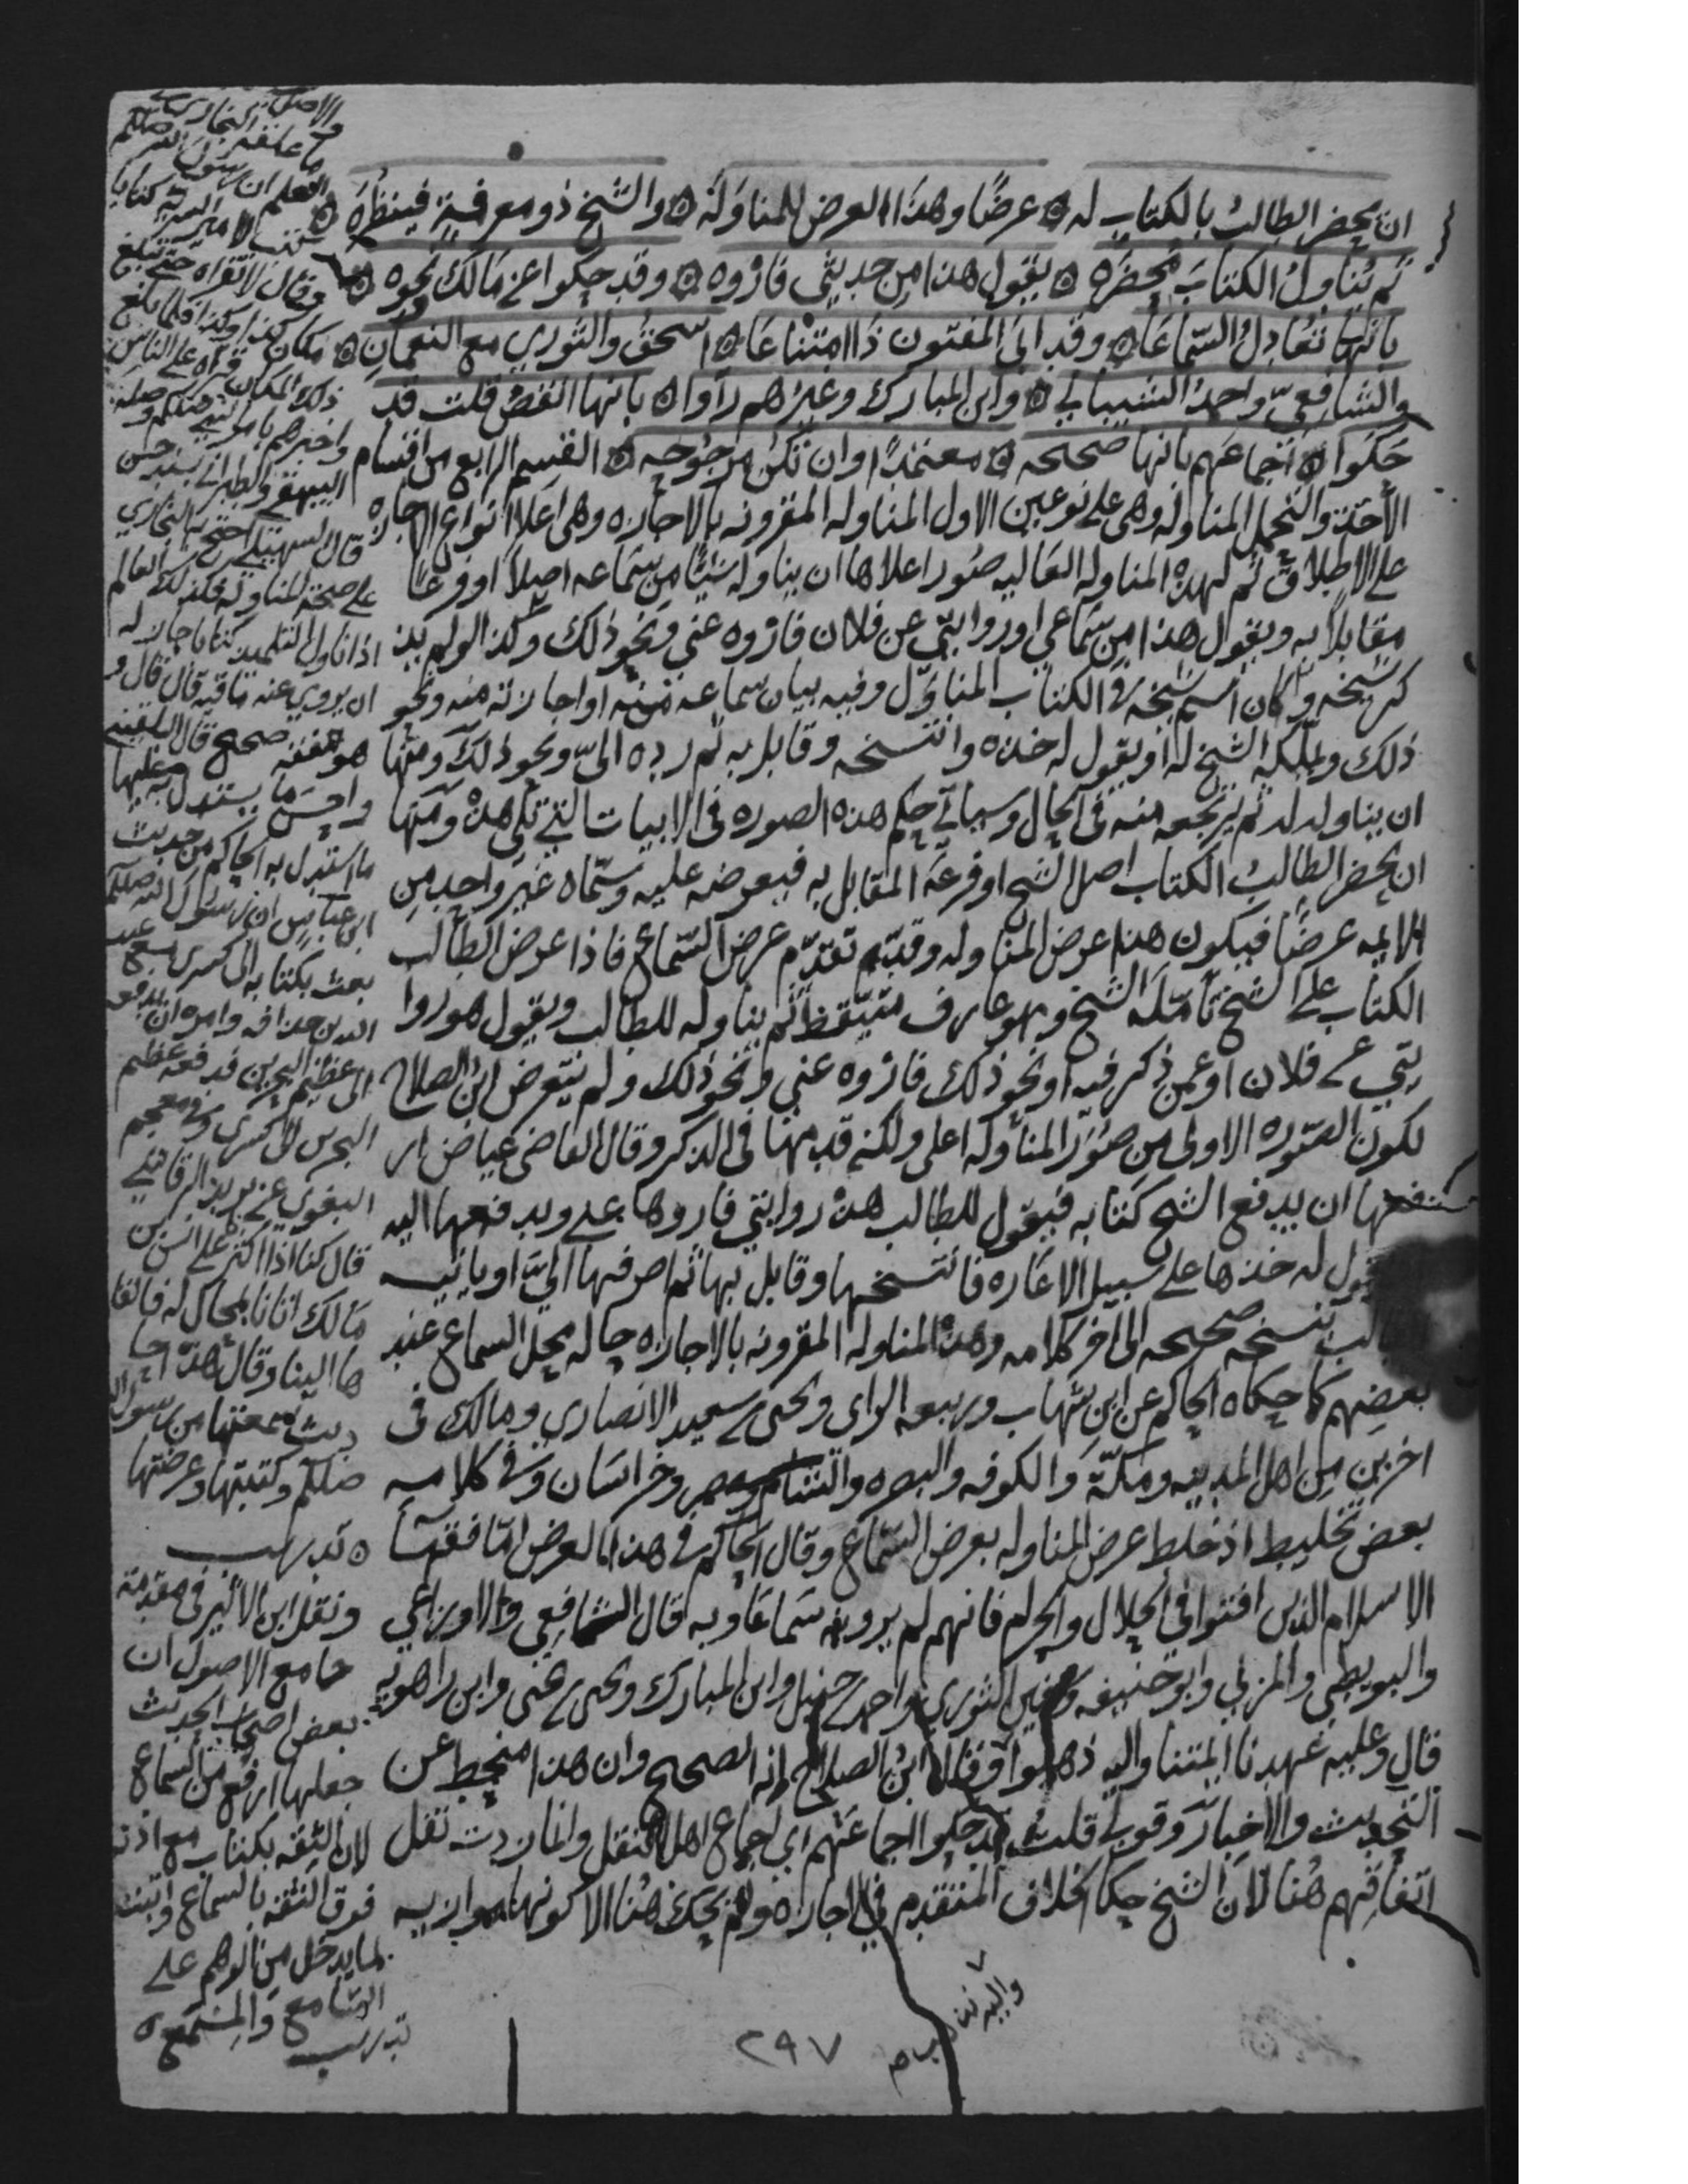 ان يحضر الطالب بالكتاب له ۞ عرضًا وهذا العرض للمناوله ۞ والشيخ ذو معرفة فينظره ۞
ثم يناول الكتاب محضره ۞ يقول هذا من حديثي فاروه ۞ وقد حكوا عن مالك نحوه ۞
بانها تعادل السماعا ۞ وقد ابى المفتون ذا امتناعا ۞ اسحق والثوري مع النعمان ۞
والشافعي واحمد الشيباني ۞ وابن المبارك وغيرهم رأوا ۞ بانها انقص قلت قد
حكوا ۞ اجماعهم بانها صحيحه ۞ معتمدًا وان تكن مرجوحه ۞ القسم الرابع من اقسام
الأخذ والتحمل المناوله وهي على نوعين الاول المناوله المقرونه بالاجازه وهى اعلا انواع الاجازه
على الاطلاق ثم لهذه المناوله العاليه صور اعلاها ان يناوله شيئًا من سماعه اصلا او فرعًا
مقابلا به ويقول هذا من سماعي او روايتي عن فلان فاروه عني ونحو ذلك وكذا لو لم يذ
كر شيخه وكان اسم شيخه في الكتاب المناول وفيه بيان سماعه منه او اجازته منه ونحو
ذلك ويملكه الشيخ له او يقول له خذه وانتسخه وقابل به ثم رده الي ونحو ذلك ومنها
ان يناوله له ثم يرتجعه منه فى الحال وسياتي حكم هذه الصوره فى الابيات التي تلي هذه ومنها
ان يحضر الطالب الكتاب اصل الشيخ او فرعه المقابل به فيعرضه عليه وسماه غير واحد من
الايمه عرضًا فيكون هذا عرض المناوله وقد تقدم عرض السماع فاذا عرض الطالب
الكتاب على الشيخ تأمله الشيخ وهو عارف متيقظ ثم يناوله للطالب ويقول هو روا
يتي عن فلان او عمن ذكر فيه او نحو ذلك فاروه عني ونحو ذلك ولم يتعرض ابن الصلاح
لكون الصوره الاولى من صور المناوله اعلى ولكنه قدمها فى الذكر وقال القاضى عياض ار
فعها ان يدفع الشيخ كتابه فيقول للطالب هذه روايتي فاروها عني ويدفعها اليه
يقول له خذها على سبيل الاعاره فانتسخها وقابل بها ثم اصرفها الي او ياتيه
الطالب بنسخه صحيحه الى اخر كلامه وهذه المناوله المقرونه بالاجازه حاله محل السماع عند
بعضهم كما حكاه الحاكم عن ابن شهاب وربيعه الراى ويحيى بن سعيد الانصاري ومالك فى
اخرين من اهل المدينه ومكة والكوفه والبصره والشام ومصر وخراسان وفي كلامه
بعض تخليط اذ خلط عرض المناوله بعرض السماع وقال الحاكم في هذا العرض اما فقها
الاسلام الذين افتوا في الحلال والحرام فانهم لم يروه سماعا وبه قال الشافعي والاوزاعي
والبويطي والمزني وابو حنيفه وسفين الثوري واحمد بن حنبل وابن المبارك ويحيى بن يحيى وابن راهويه
قال وعليه عهدنا ايمتنا واليه ذهبوا وقال ابن الصلاح انه الصحيح وان هذا منحط عن
التحديث والاخبار وقولي قلت قد حكوا اجماعهم اي اجماع اهل النقل وانما زدت نقل
اتفاقهم هنا لان الشيخ حكا الخلاف المتقدم في الاجازه ولم يحك هنا الا كونها موازيه
واليه نذهب
٢٩٧
والاصل
ما علقه البخاري في
العلم ان رسول الله صلعم
كتب لامير السريه كتابا
وقال لا تقراه حتى تبلغ
مكان كذا وكذا فلما بلغ
ذلك المكان قراه على الناس
واخبرهم بامر النبي صلعم وصله
البيهقي والطبراني بسند حسن
قال السهيلي احتج به البخاري
على صحة المناوله فكذلك العالم
اذا ناول التلميذ كتابا جاز له
ان يروي عنه ما فيه قال قال و
هو فقه صحيح قال البلقيني
واحسن ما يستدل به عليها
ما استدل به الحاكم من حديث
ابن عباس ان رسول الله صلعم
بعث بكتابه الى كسرى مع عبد
الله بن حذافه وامره ان يدفعه
الى عظيم البحرين فدفعه عظيم
البحرين الى كسرى وفي معجم
البغوي عن يزيد الرقاشي
قال كنا اذا اكثرنا على انس بن
مالك اتانا بمجال له فالقا
ها الينا وقال هذه احا
ديث سمعتها من رسول الله
صلعم وكتبتها وعرضتها
۞ تدريب
ونقل ابن الاثير فى مقدمة
جامع الاصول ان
بعض اصحاب الحديث
جعلها ارفع من السماع
لان الثقه بكتاب مع اذنه
فوق الثقه بالسماع واثبت
لما يدخل من الوهم على
السامع والمسمع ۞
تدريب